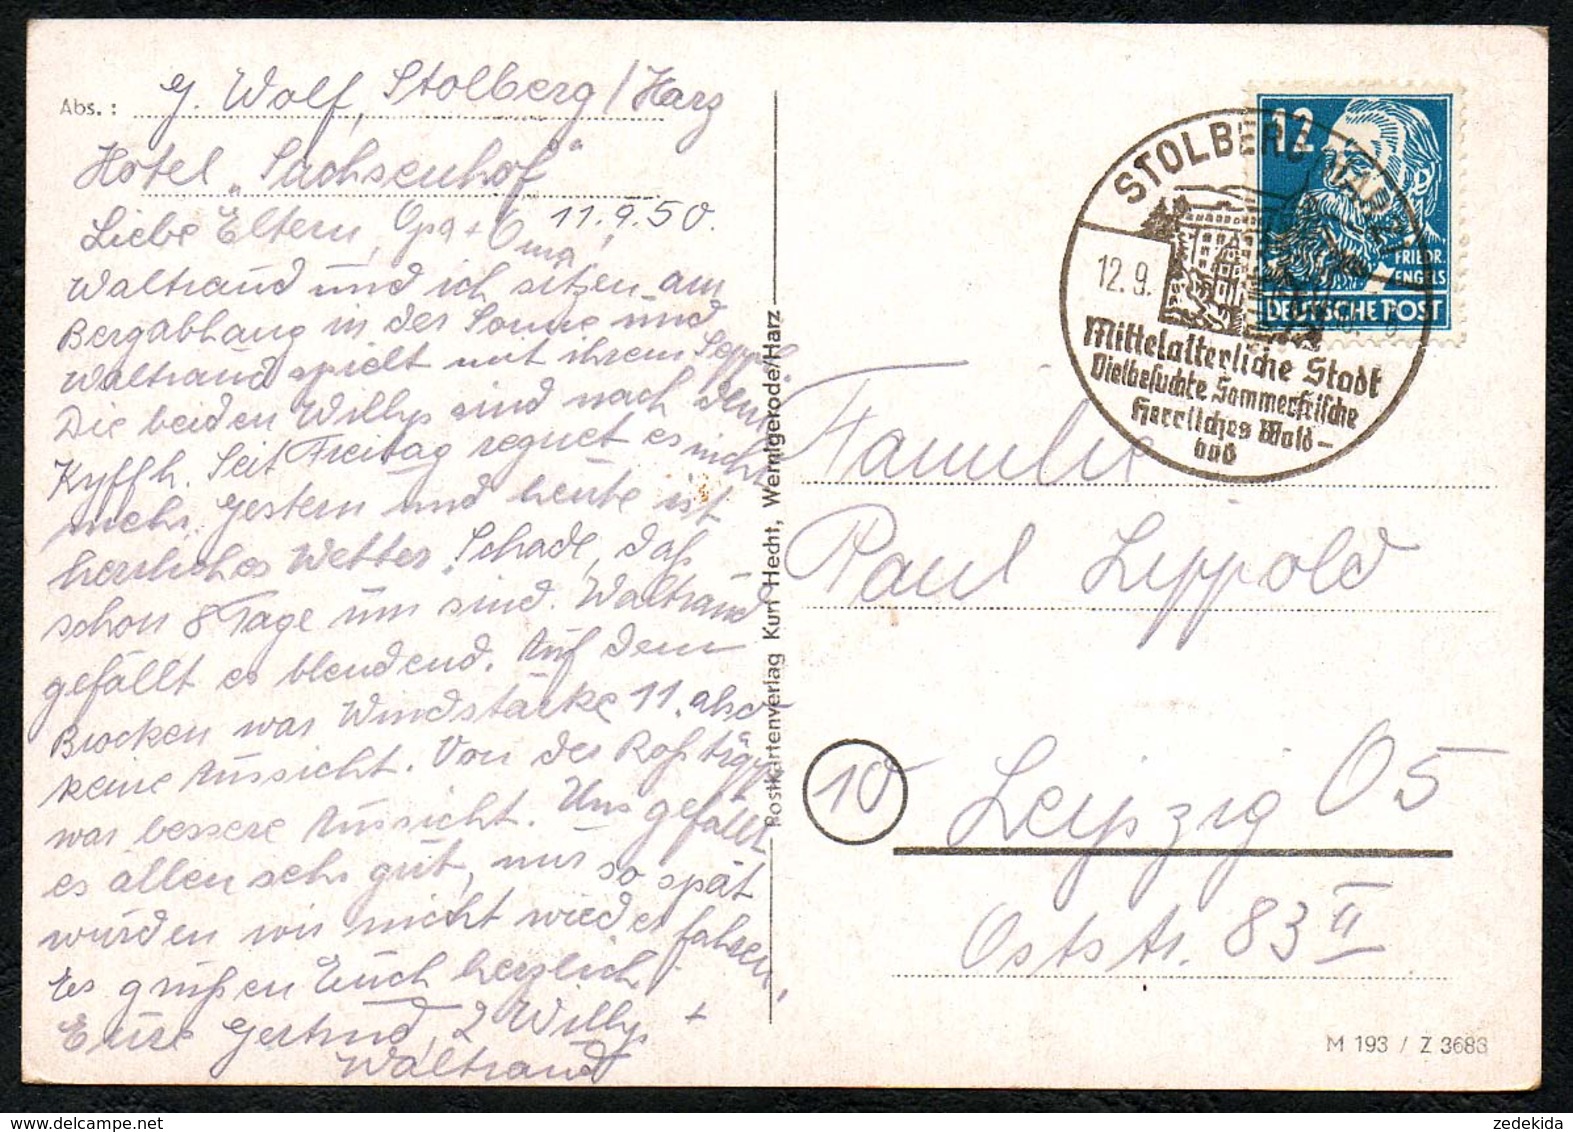 Abs.: G. Wolf, Stolberg/Harz
Hotel „Sachsenhof“
11.9.50.
Liebe Eltern, Opa + Oma,
Waltraud und ich sitzen am
Bergabhang in der Sonne und
Waltraud spielt mit ihrem Seppl.
Die beiden Willys sind nach dem
Kyffh. Seit Freitag regnet es nicht
mehr. Gestern und heute ist
herrliches Wetter. Schade, daß
schon 8 Tage um sind. Waltraud
gefällt es blendend. Auf dem
Brocken war Windstärke 11, also
keine Aussicht. Von der Roßtrappe
war bessere Aussicht. Uns gefällt
es allen sehr gut, nur so spät
würden wir nicht wieder fahren.
Es grüßen Euch herzlich
Eure Gertrud, 2 Willys +
Waltraud
Postkartenverlag Kurt Hecht, Wernigerode/Harz
12
FRIEDR.
ENGELS
DEUTSCHE POST
STOLBERG (HARZ)
12.9.
Mittelalterliche Stadt
Vielbesuchte Sommerfrische
Herrliches Wald-
bad
Familie
Paul Lippold
10
Leipzig O5
Oststr. 83 II
M 193 / Z 3683
zedekida